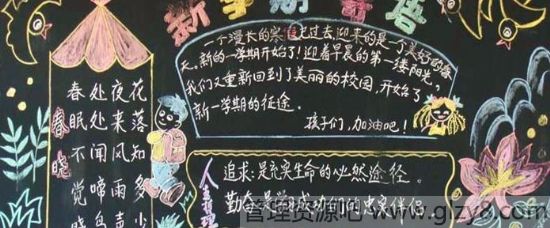 新学期寄语
春晓
春眠不觉晓
处处闻啼鸟
夜来风雨声
花落知多少
一个漫长的寒过去迎来的是一个美好的春
天、新的一学期开始了！迎着早晨的第一缕阳光，
我们又重新回到了美丽的校园，开始了
新一学期的征途。
孩子们，加油吧！
人生哲理
追求是充实生命的必然途径。
勤奋是成功的忠实伴侣
管理资源吧 www.glzy8.com